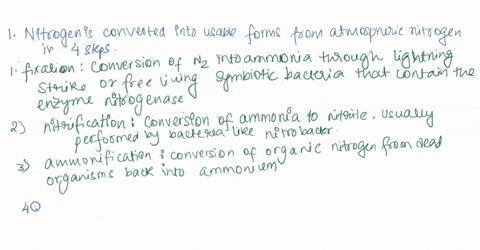 1. Nitrogen is converted into usable forms from atmospheric nitrogen
in 4 steps.
1. fixation : conversion of N2 into ammonia through lightning
strike or free living symbiotic bacteria that contain the
enzyme nitrogenase
2) nitrification : conversion of ammonia to nitrite. usually
performed by bacteria like nitrobacter.
3) ammonification : conversion of organic nitrogen from dead
organisms back into ammonium
4